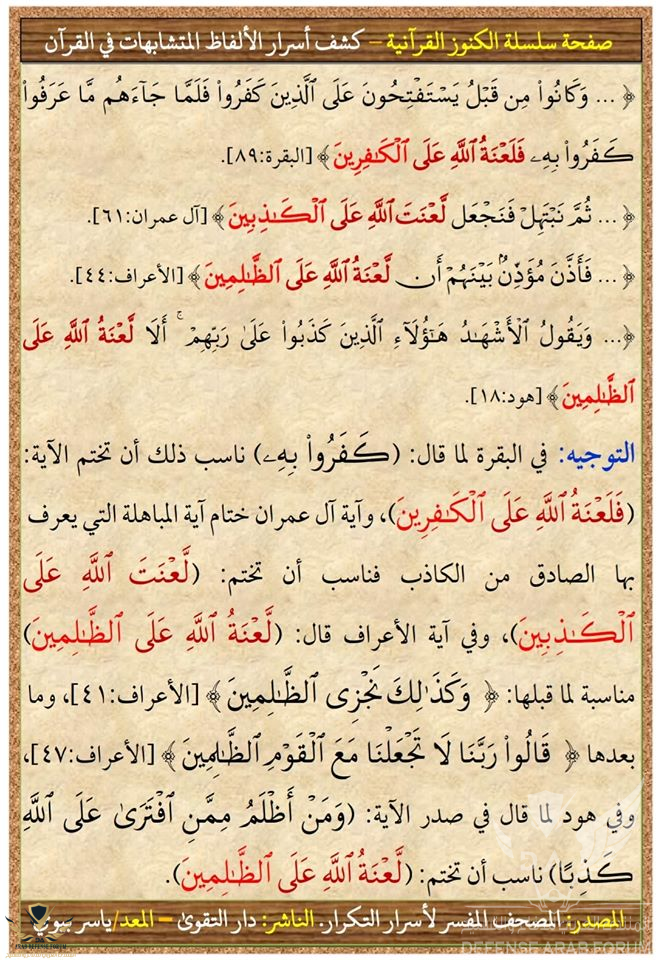 صفحة سلسلة الكنوز القرآنية – كشف أسرار الألفاظ المتشابهات في القرآن
﴿ ... وَكَانُواْ مِن قَبْلُ يَسْتَفْتِحُونَ عَلَى ٱلَّذِينَ كَفَرُواْ فَلَمَّا جَآءَهُم مَّا عَرَفُواْ
كَفَرُواْ بِهِۦ فَلَعْنَةُ ٱللَّهِ عَلَى ٱلْكَٰفِرِينَ﴾ [البقرة:٨٩].
﴿ ... ثُمَّ نَبْتَهِلْ فَنَجْعَل لَّعْنَتَ ٱللَّهِ عَلَى ٱلْكَٰذِبِينَ﴾ [آل عمران:٦١].
﴿ ... فَأَذَّنَ مُؤَذِّنٌۢ بَيْنَهُمْ أَن لَّعْنَةُ ٱللَّهِ عَلَى ٱلظَّٰلِمِينَ﴾ [الأعراف:٤٤].
﴿... وَيَقُولُ ٱلْأَشْهَٰدُ هَٰٓؤُلَآءِ ٱلَّذِينَ كَذَبُواْ عَلَىٰ رَبِّهِمْ ۚ أَلَا لَعْنَةُ ٱللَّهِ عَلَى
ٱلظَّٰلِمِينَ﴾ [هود:١٨].
التوجيه: في البقرة لما قال: (كَفَرُواْ بِهِۦ) ناسب ذلك أن تختم الآية:
(فَلَعْنَةُ ٱللَّهِ عَلَى ٱلْكَٰفِرِينَ)، وآية آل عمران ختام آية المباهلة التي يعرف
بها الصادق من الكاذب فناسب أن تختم: (لَّعْنَتَ ٱللَّهِ عَلَى
ٱلْكَٰذِبِينَ)، وفي آية الأعراف قال: (لَّعْنَةُ ٱللَّهِ عَلَى ٱلظَّٰلِمِينَ)
مناسبة لما قبلها: ﴿ وَكَذَٰلِكَ نَجْزِى ٱلظَّٰلِمِينَ ﴾ [الأعراف:٤١]، وما
بعدها ﴿ قَالُواْ رَبَّنَا لَا تَجْعَلْنَا مَعَ ٱلْقَوْمِ ٱلظَّٰلِمِينَ ﴾ [الأعراف:٤٧]،
وفي هود لما قال في صدر الآية: (وَمَنْ أَظْلَمُ مِمَّنِ ٱفْتَرَىٰ عَلَى ٱللَّهِ
كَذِبًا) ناسب أن تختم: (لَّعْنَةُ ٱللَّهِ عَلَى ٱلظَّٰلِمِينَ).
المصدر: المصحف المفسر لأسرار التكرار. الناشر: دار التقوى – المعد/ياسر بيومي
DEFENSE ARAB FORUM